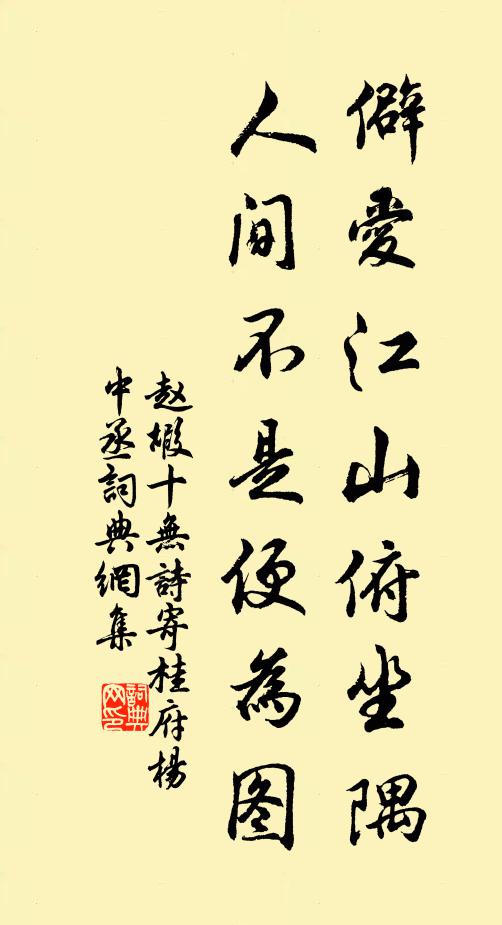 僻愛江山俯坐隅
人间不是便為图
赵嘏十無詩寄桂府楊
中丞詞典網集
詞典网印